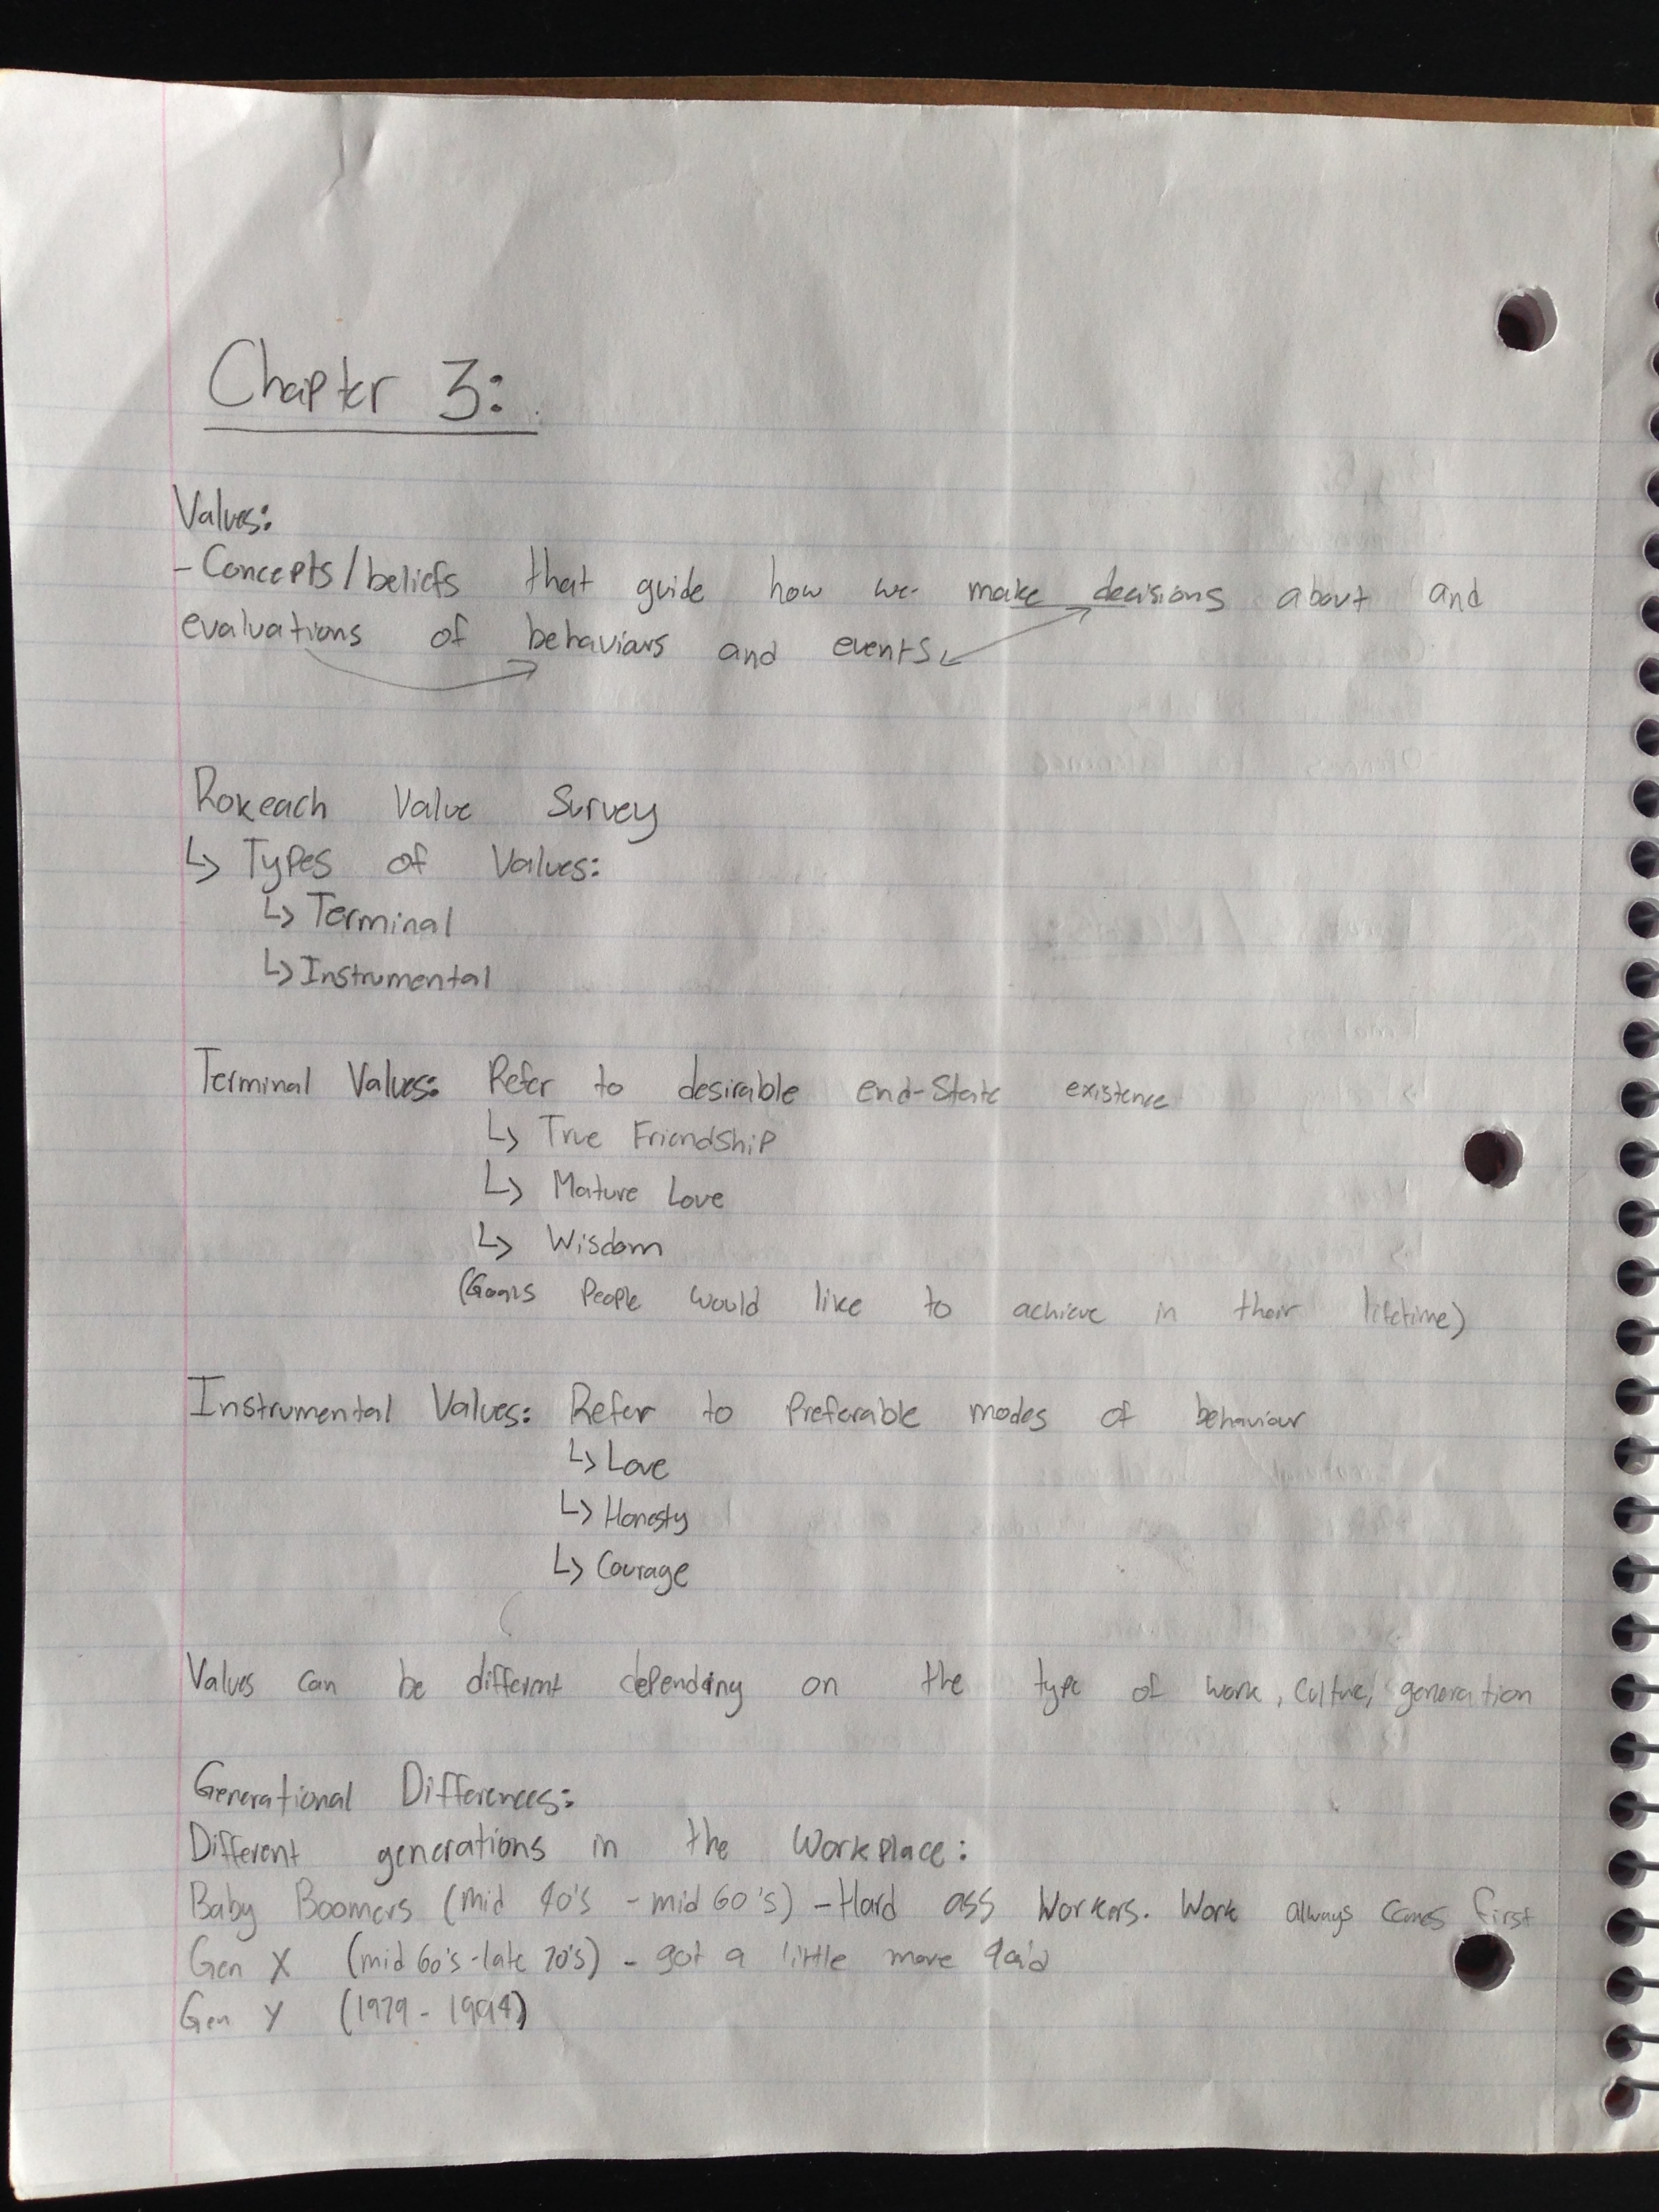 Chapter 3:
Values:
- Concepts/beliefs that guide how we make decisions about and
evaluations of behaviours and events
Rokeach Value Survey
↳ Types of Values:
↳ Terminal
↳ Instrumental
Terminal Values: Refer to desirable end-state existence
↳ True Friendship
↳ Mature Love
↳ Wisdom
(Goals People would like to achieve in their lifetime)
Instrumental Values: Refer to Preferable modes of behaviour
↳ Love
↳ Honesty
↳ Courage
Values can be different depending on the type of work, culture, generation
Generational Differences:
Different generations in the Workplace:
Baby Boomers (mid 40's - mid 60's) - Hard ass Workers. Work always comes first
Gen X (mid 60's - late 70's) - got a little more
Gen Y (1979 - 1994)